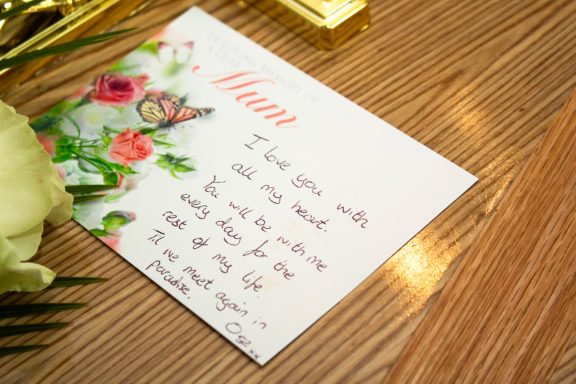 IN LOVING MEMORY OF
A DEAR
Mum
I love you with
all my heart.
You will be with me
every day for the
rest of my life.
Til we meet again in
paradise.